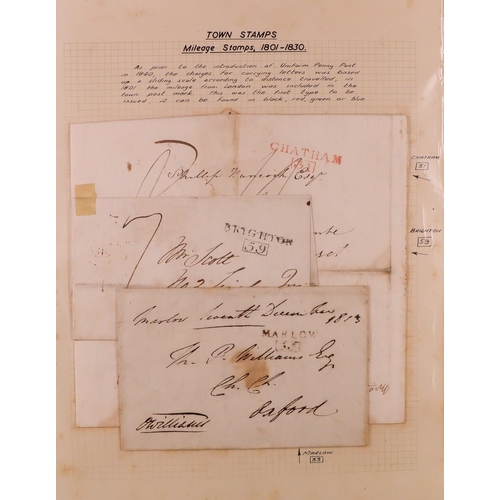 TOWN STAMPS
Mileage Stamps, 1801-1830.
As prior to the introduction of Uniform Penny Post
in 1840, the charges for carrying letters was based
up a sliding scale according to distance travelled, in
1801 the mileage from London was included in the
town post mark. This was the first type to be
issued, it can be found in black, red, green or blue.
CHATHAM
CHATHAM
31
Phillip Esqr
BRIGHTON
59
BRIGHTON
59
7
Mr Scott
No 2
Marlow Seventh December
1813
MARLOW
Th. P. Williams Esq
Ch. Ch.
Oxford
OWilliams
MARLOW
35